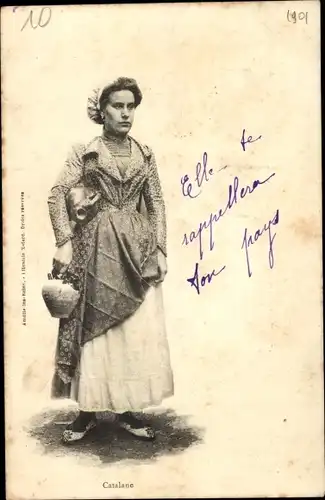 10
1901
Elle te
rappellera
ton pays
Catalane